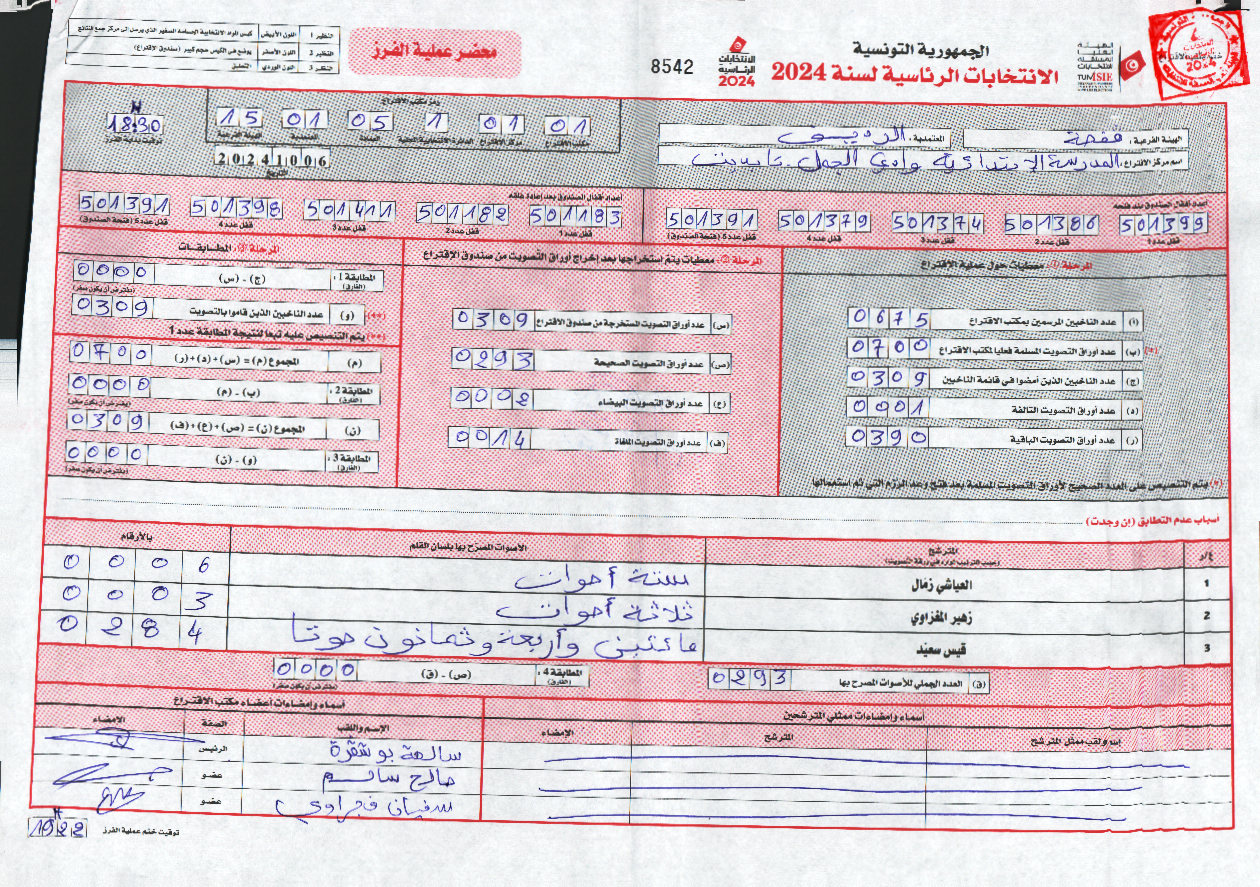 الجمهورية التونسية
الانتخابات الرئاسية لسنة 2024
الهيئة العليا المستقلة للانتخابات
TUNISIE
الانتخابات الرئاسية 2024
8542
محضر عملية الفرز
النظير 1 اللون الأبيض
النظير 2 اللون الأصفر يوضع في الكيس حجم كبير (صندوق الاقتراع)
النظير 3 اللون الوردي التعليق
الهيئة الفرعية : قفصة المعتمدية : الرديف
اسم مركز الاقتراع : المدرسة الإبتدائية وادي الجمل
رمز مكتب الاقتراع
01 01 1 05 01 15
مكتب الاقتراع مركز الاقتراع الدائرة الانتخابية المعتمدية الهيئة الفرعية
20241006
التاريخ
18H30
توقيت بداية الفرز
أعداد أقفال الصندوق عند فتحه
501399 501386 501374 501379 501391
قفل عدد 1 قفل عدد 2 قفل عدد 3 قفل عدد 4 قفل عدد 5 (فتحة الصندوق)
أعداد أقفال الصندوق بعد إعادة غلقه
501183 501182 501411 501398 501391
قفل عدد 1 قفل عدد 2 قفل عدد 3 قفل عدد 4 قفل عدد 5 (فتحة الصندوق)
المرحلة ①: معطيات حول عملية الاقتراع
(أ) عدد الناخبين المرسمين بمكتب الاقتراع 0675
(*) (ب) عدد أوراق التصويت المسلمة فعليا لمكتب الاقتراع 0700
(ج) عدد الناخبين الذين أمضوا في قائمة الناخبين 0309
(د) عدد أوراق التصويت التالفة 0001
(ر) عدد أوراق التصويت الباقية 0390
(*) يتم التنصيص على العدد الصحيح لأوراق التصويت المسلمة بعد فتح وعد الرزم التي تم استعمالها
المرحلة ②: معطيات يتم استخراجها بعد إخراج أوراق التصويت من صندوق الاقتراع
(س) عدد أوراق التصويت المستخرجة من صندوق الاقتراع 0309
(ص) عدد أوراق التصويت الصحيحة 0293
(ع) عدد أوراق التصويت البيضاء 0002
(ف) عدد أوراق التصويت الملغاة 0014
المرحلة ③: المطابقات
المطابقة 1 : (الفارق) (ج) - (س) 0000
(يفترض أن يكون صفر)
(**) (و) عدد الناخبين الذين قاموا بالتصويت 0309
(**) يتم التنصيص عليه تبعا لنتيجة المطابقة عدد 1
(م) المجموع (م) = (س)+(د)+(ر) 0700
المطابقة 2 : (الفارق) (ب) - (م) 0000
(يفترض أن يكون صفر)
(ن) المجموع (ن) = (ص)+(ع)+(ف) 0309
المطابقة 3 : (الفارق) (و) - (ن) 0000
(يفترض أن يكون صفر)
أسباب عدم التطابق (إن وجدت)
ع/ر المترشح (حسب الترتيب الوارد في ورقة التصويت) الأصوات المصرح بها بلسان القلم بالأرقام
1 العياشي زمال ستة أصوات 0006
2 زهير المغزاوي ثلاثة أصوات 0003
3 قيس سعيّد مائتين وأربعة وثمانون صوتا 0284
(ق) العدد الجملي للأصوات المصرح بها 0293
المطابقة 4 : (الفارق) (ص) - (ق) 0000
(يفترض أن يكون صفر)
أسماء وإمضاءات ممثلي المترشحين
إسم ولقب ممثل المترشح المترشح الإمضاء
أسماء وإمضاءات أعضاء مكتب الاقتراع
الإسم واللقب الصفة الامضاء
سالمة بوشقرة الرئيس
صالح سالم عضو
سفيان فجراوي عضو
توقيت ختم عملية الفرز 19H22